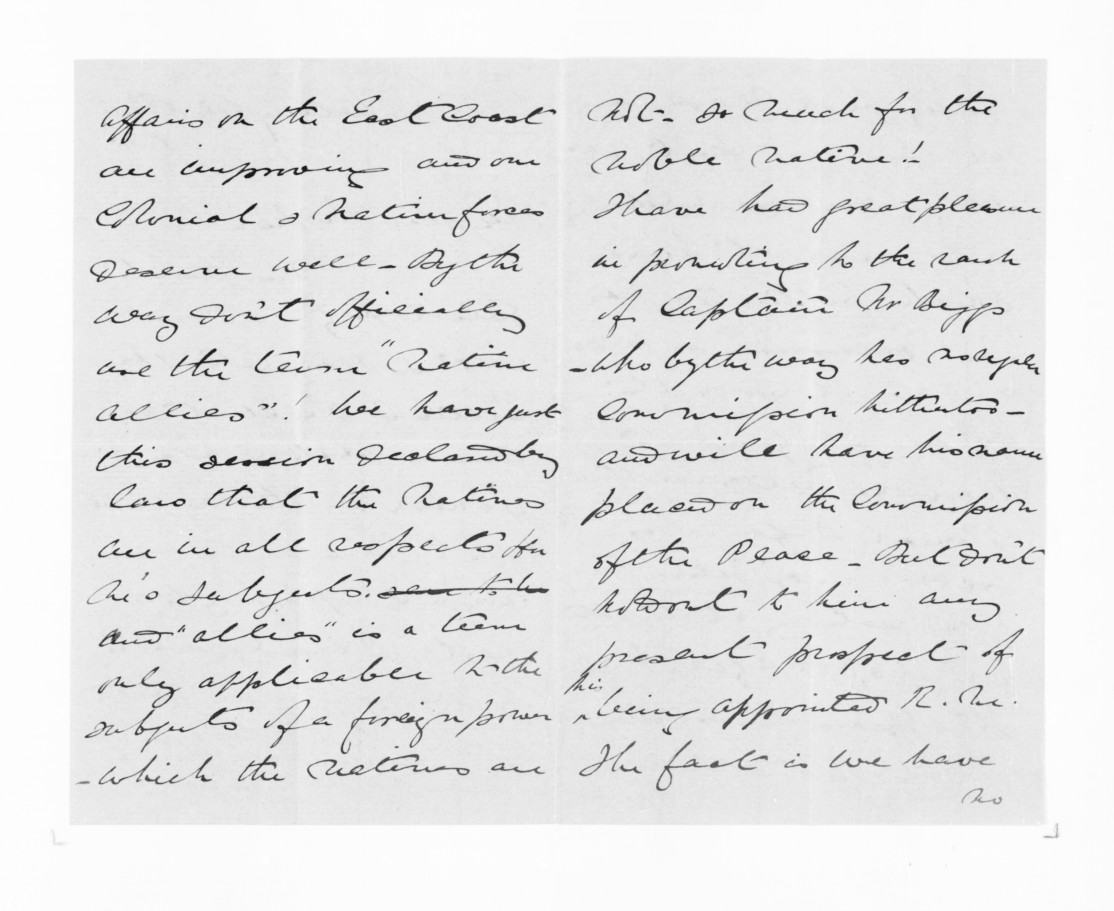 affairs on the East Coast
are improving and our
Colonial & Native forces
deserve well – By the
way don't officially
use the term "native
allies"! We have just
this session declared by
law that the Natives
are in all respects Her
M's subjects.
and "allies" is a term
only applicable to the
subjects of a foreign power
– which the natives are
not – So much for the
noble native!
I have had great pleasure
in promoting to the rank
of Captain Mr Biggs
– who by the way has no regular
Commission hitherto –
and will have his name
placed on the Commission
of the Peace – But don't
hold out to him any
present prospect of
his being appointed R. M.
The fact is we have
no